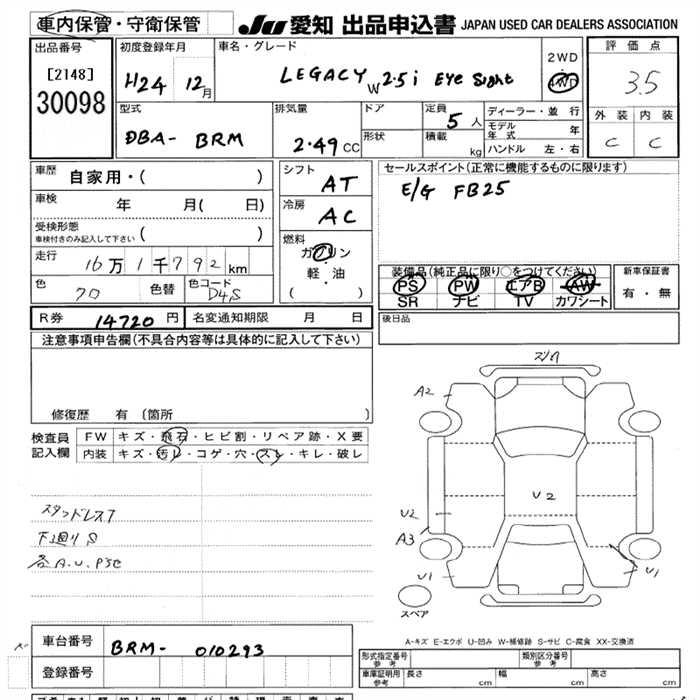 車内保管・守衛保管
JU 愛知 出品申込書 JAPAN USED CAR DEALERS ASSOCIATION
出品番号
[2148]
30098
初度登録年月
H24 12月
車名・グレード
LEGACY W 2.5i Eye Sight
2WD
4WD
評価点
3.5
外装 内装
C C
型式
DBA- BRM
排気量
2.49 CC
ドア
形状
定員
5人
積載
kg
ディーラー・並行
モデル年式 年
ハンドル 左・右
車歴
自家用・( )
車検 年 月( 日)
受検形態
車検付きのみ記入して下さい ( )
走行 16万1千792km
色 色替 色コード
D4S
シフト
AT
冷房
AC
燃料
ガソリン
・
軽・油
( )
セールスポイント(正常に機能するものに限ります)
E/G FB25
装備品(純正品に限り○をつけてください)
PS PW エアB AW
SR ナビ TV カワシート
新車保証書
有・無
R券 14720円 名変通知期限 月 日
後日品
注意事項申告欄(不具合内容等は具体的に記入して下さい)
修復歴 有 〔箇所 〕
検査員記入欄
FW キズ・飛石・ヒビ割・リペア跡・X要
内装 キズ・汚レ・コゲ・穴・スレ・キレ・破レ
スタッドレスT
下廻りS
各A.U.P5E
A2
U2
U2
A3
U1
U1
スペア
A-キズ E-エクボ U-凹み W-補修跡 S-サビ C-腐食 XX-交換済
車台番号 BRM- 010293
登録番号
形式指定番号
参考
類別区分番号
参考
車庫証明用
参考
長さ cm 幅 cm 高さ cm